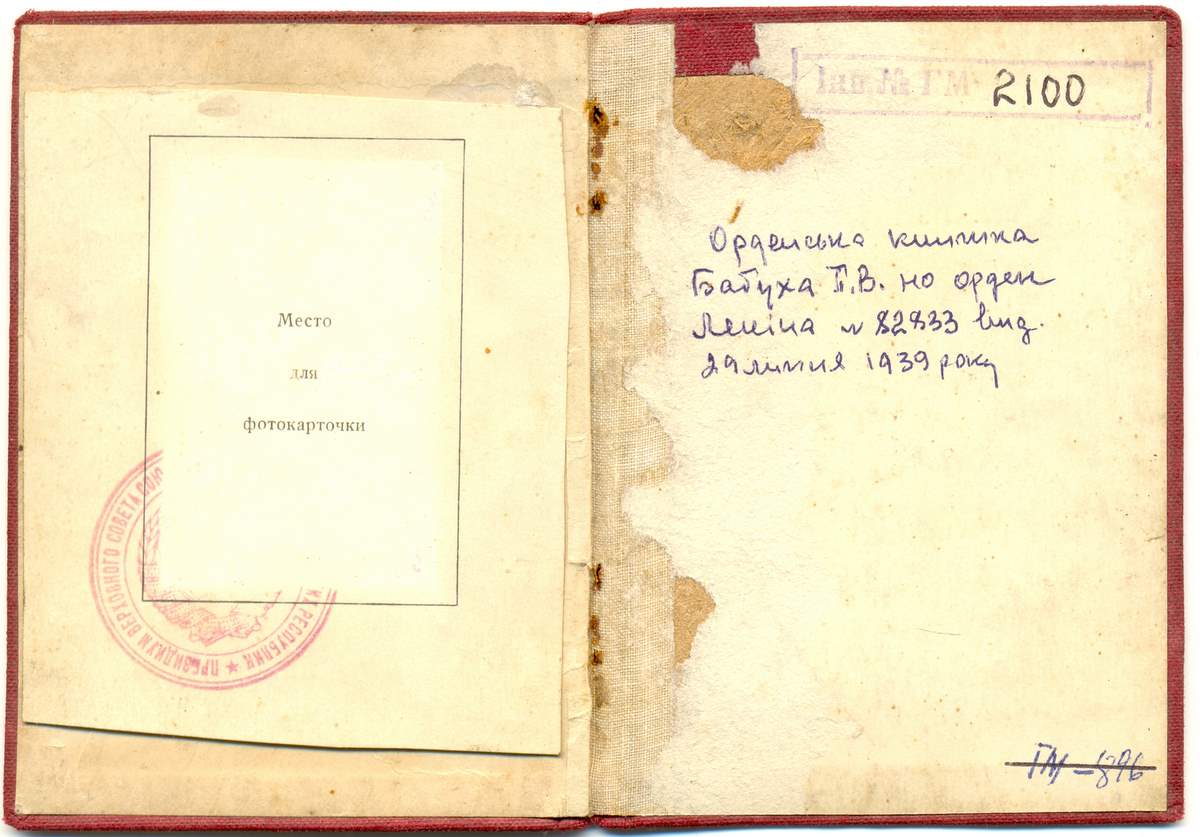 Место
для
фотокарточки
ПРЕЗИДИУМ ВЕРХОВНОГО СОВЕТА СОЮ
РЕСПУБЛИК
Інв № ГМ 2100
Орденська книжка
Бабуха П.В. на орден
Леніна № 82833 вид.
29 липня 1939 року
ГМ-896